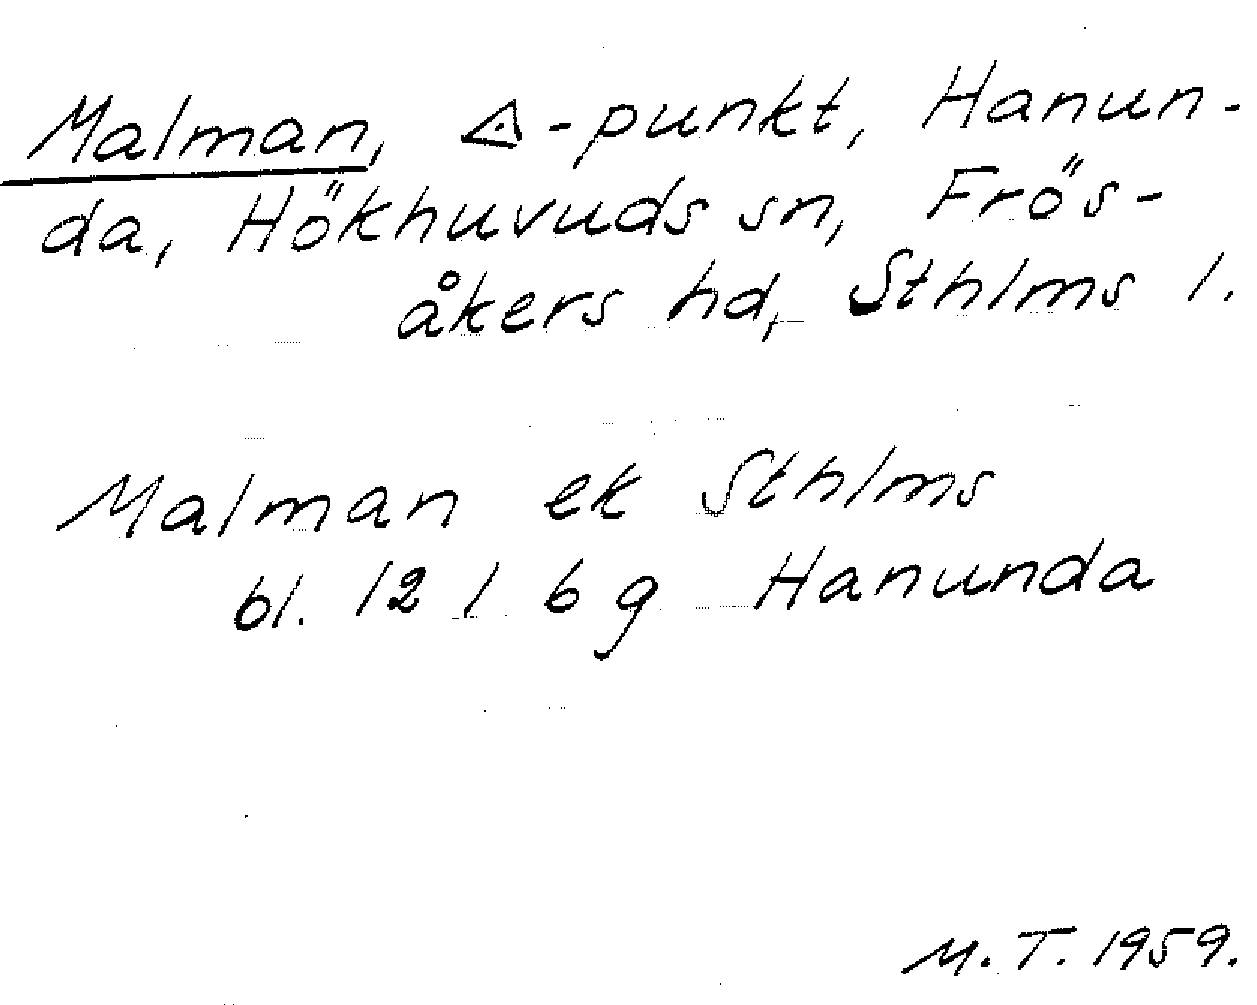 Malman, ◬-punkt, Hanun-
da, Hökhuvuds sn, Frös-
åkers hd, Sthlms l.
Malman ek Sthlms
bl. 12 1 6 g Hanunda
M.T. 1959.